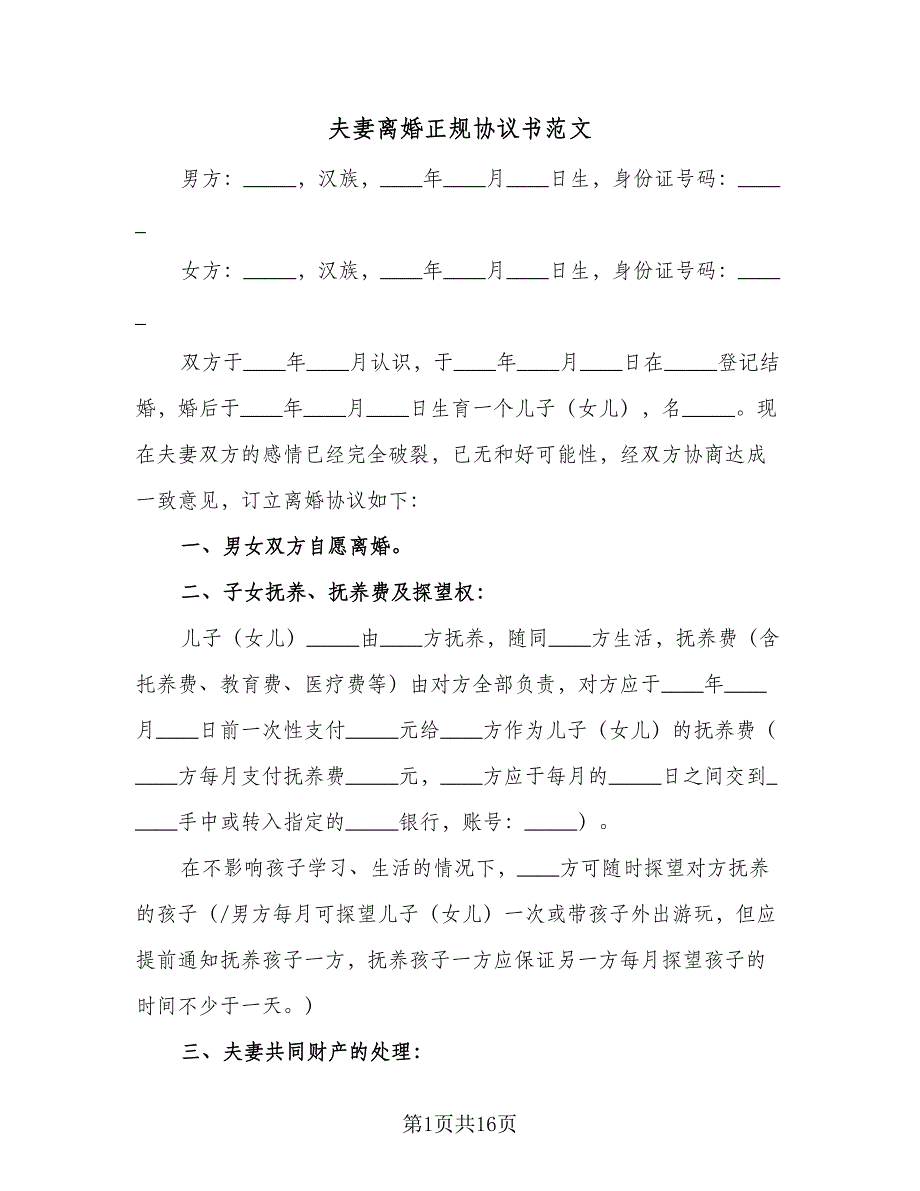 夫妻离婚正规协议书范文
男方：_____，汉族，____年____月____日生，身份证号码：____
_
女方：_____，汉族，____年____月____日生，身份证号码：____
_
双方于____年____月认识，于____年____月____日在_____登记结
婚，婚后于____年____月____日生育一个儿子（女儿），名_____。现
在夫妻双方的感情已经完全破裂，已无和好可能性，经双方协商达成
一致意见，订立离婚协议如下：
一、男女双方自愿离婚。
二、子女抚养、抚养费及探望权：
儿子（女儿）_____由____方抚养，随同____方生活，抚养费（含
托养费、教育费、医疗费等）由对方全部负责，对方应于____年____
月____日前一次性支付_____元给____方作为儿子（女儿）的抚养费（
____方每月支付抚养费_____元，____方应于每月的_____日之间交到_
____手中或转入指定的_____银行，账号：_____）。
在不影响孩子学习、生活的情况下，____方可随时探望对方抚养
的孩子（/男方每月可探望儿子（女儿）一次或带孩子外出游玩，但应
提前通知抚养孩子一方，抚养孩子一方应保证另一方每月探望孩子的
时间不少于一天。）
三、夫妻共同财产的处理：
第1页共16页